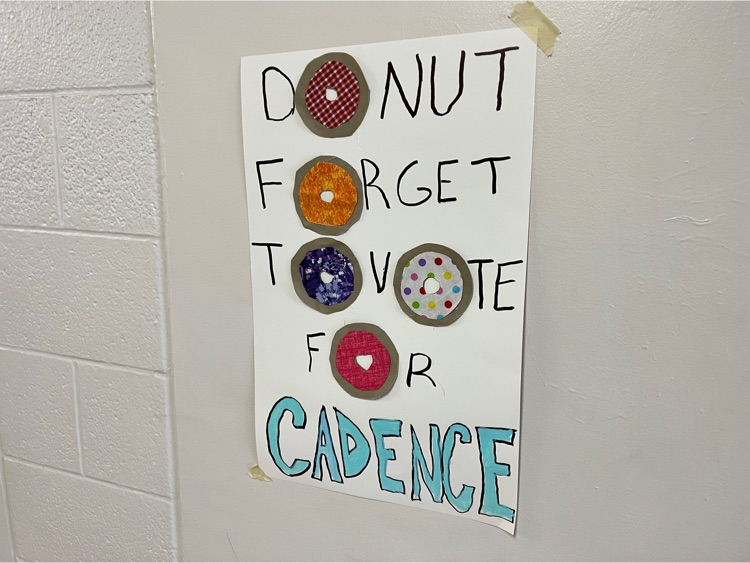 DONUT
FORGET
TO VOTE
FOR
CADENCE